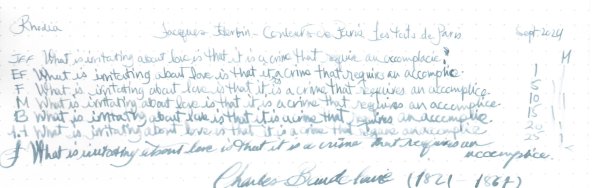 Rhodia Jacques Herbin - Les Toits de Paris Sept 2024
M
JEF What is irritating about love is that it is a crime that require an accomplice.
EF What is irritating about love is that it is a crime that requires an accomplice. 1
F What is irritating about love is that it is a crime that requires an accomplice. 5
M What is irritating about love is that it is a crime that requires an accomplice. 10
B What is irritating about love is that it is a crime that requires an accomplice. 15
1.1 What is irritating about love is that it is a crime that require an accomplice 20
f What is irritating about love is that it is a crime that requires an accomplice. 25
Charles Baudelaire (1821 - 1867)